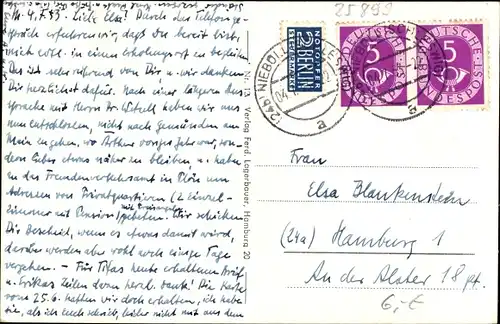 25890
M. 4.7.53. Liebe Elsa! Durch das Telefonge-
spräch erfuhren wir, daß Du bereit bist,
mich evtl. in einen Erholungsort zu begleiten.
Das ist sehr rührend von Dir u. wir danken
Dir herzlichst dafür. Nach einer längeren Aus-
sprache mit Herrn Dr. haben wir uns
nun entschlossen, nicht nach Gemünden am
Main zu gehen, wo Arthur voriges Jahr war, son-
dern lieber etwas näher zu bleiben, u. haben
an das Fremdenverkehrsamt in Plön um
Adressen von Privatquartieren (2 Einzel-
zimmer mit Pension) gebeten. Wir schreiben
mit Preisangabe
Dir Bescheid, wenn es etwas damit wird,
darüber werden aber wohl noch einige Tage
vergehen. – Für heute erhaltenen Brief
u. Erikas Zeilen vielen herzl. Dank! Die Karte
vom 25.6. hatten wir doch erhalten, ich habe
sie, als ich Euch schrieb, leider nicht mit aus dem
Nr. 113 Verlag Ferd. Lagerbauer, Hamburg 20
NOTOPFER
2 BERLIN
STEUERMARKE
(24b) NIEBÜLL
a
DEUTSCHE BUNDESPOST
5
DEUTSCHE BUNDESPOST
5
a
Frau
Elsa Blankenstein
(24a) Hamburg 1
An der Alster 18 pt.
6,-€